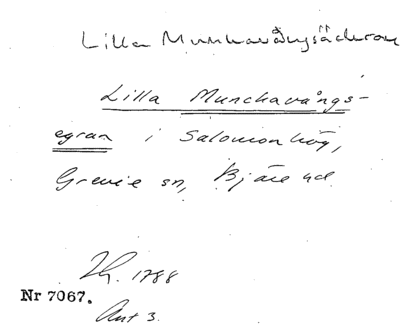 Lilla Munkavångsåkrarne
Lilla Munchavångs-
egran i Salomonhög,
Grevie sn, Bjäre hd
1788
Nr 7067.
Akt 3.